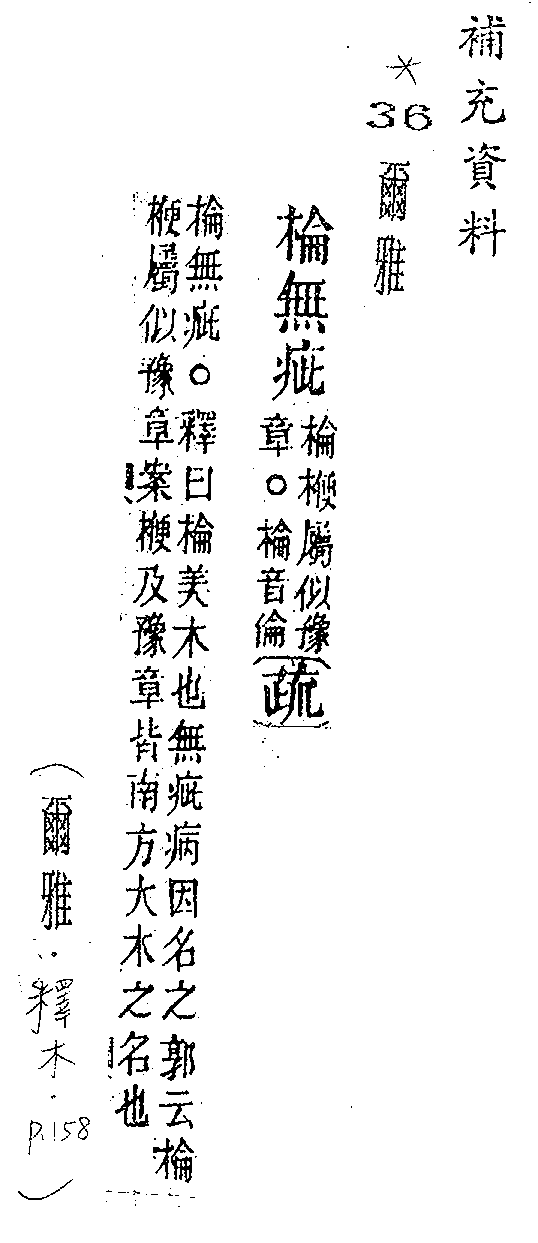 補充資料
*36 爾雅
棆無疵
棆楩屬似豫
章。棆音倫
(疏)
棆無疵。釋曰棆美木也無疵病因名之郭云棆
楩屬似豫章案楩及豫章皆南方大木之名也
(爾雅·釋木·p.158)